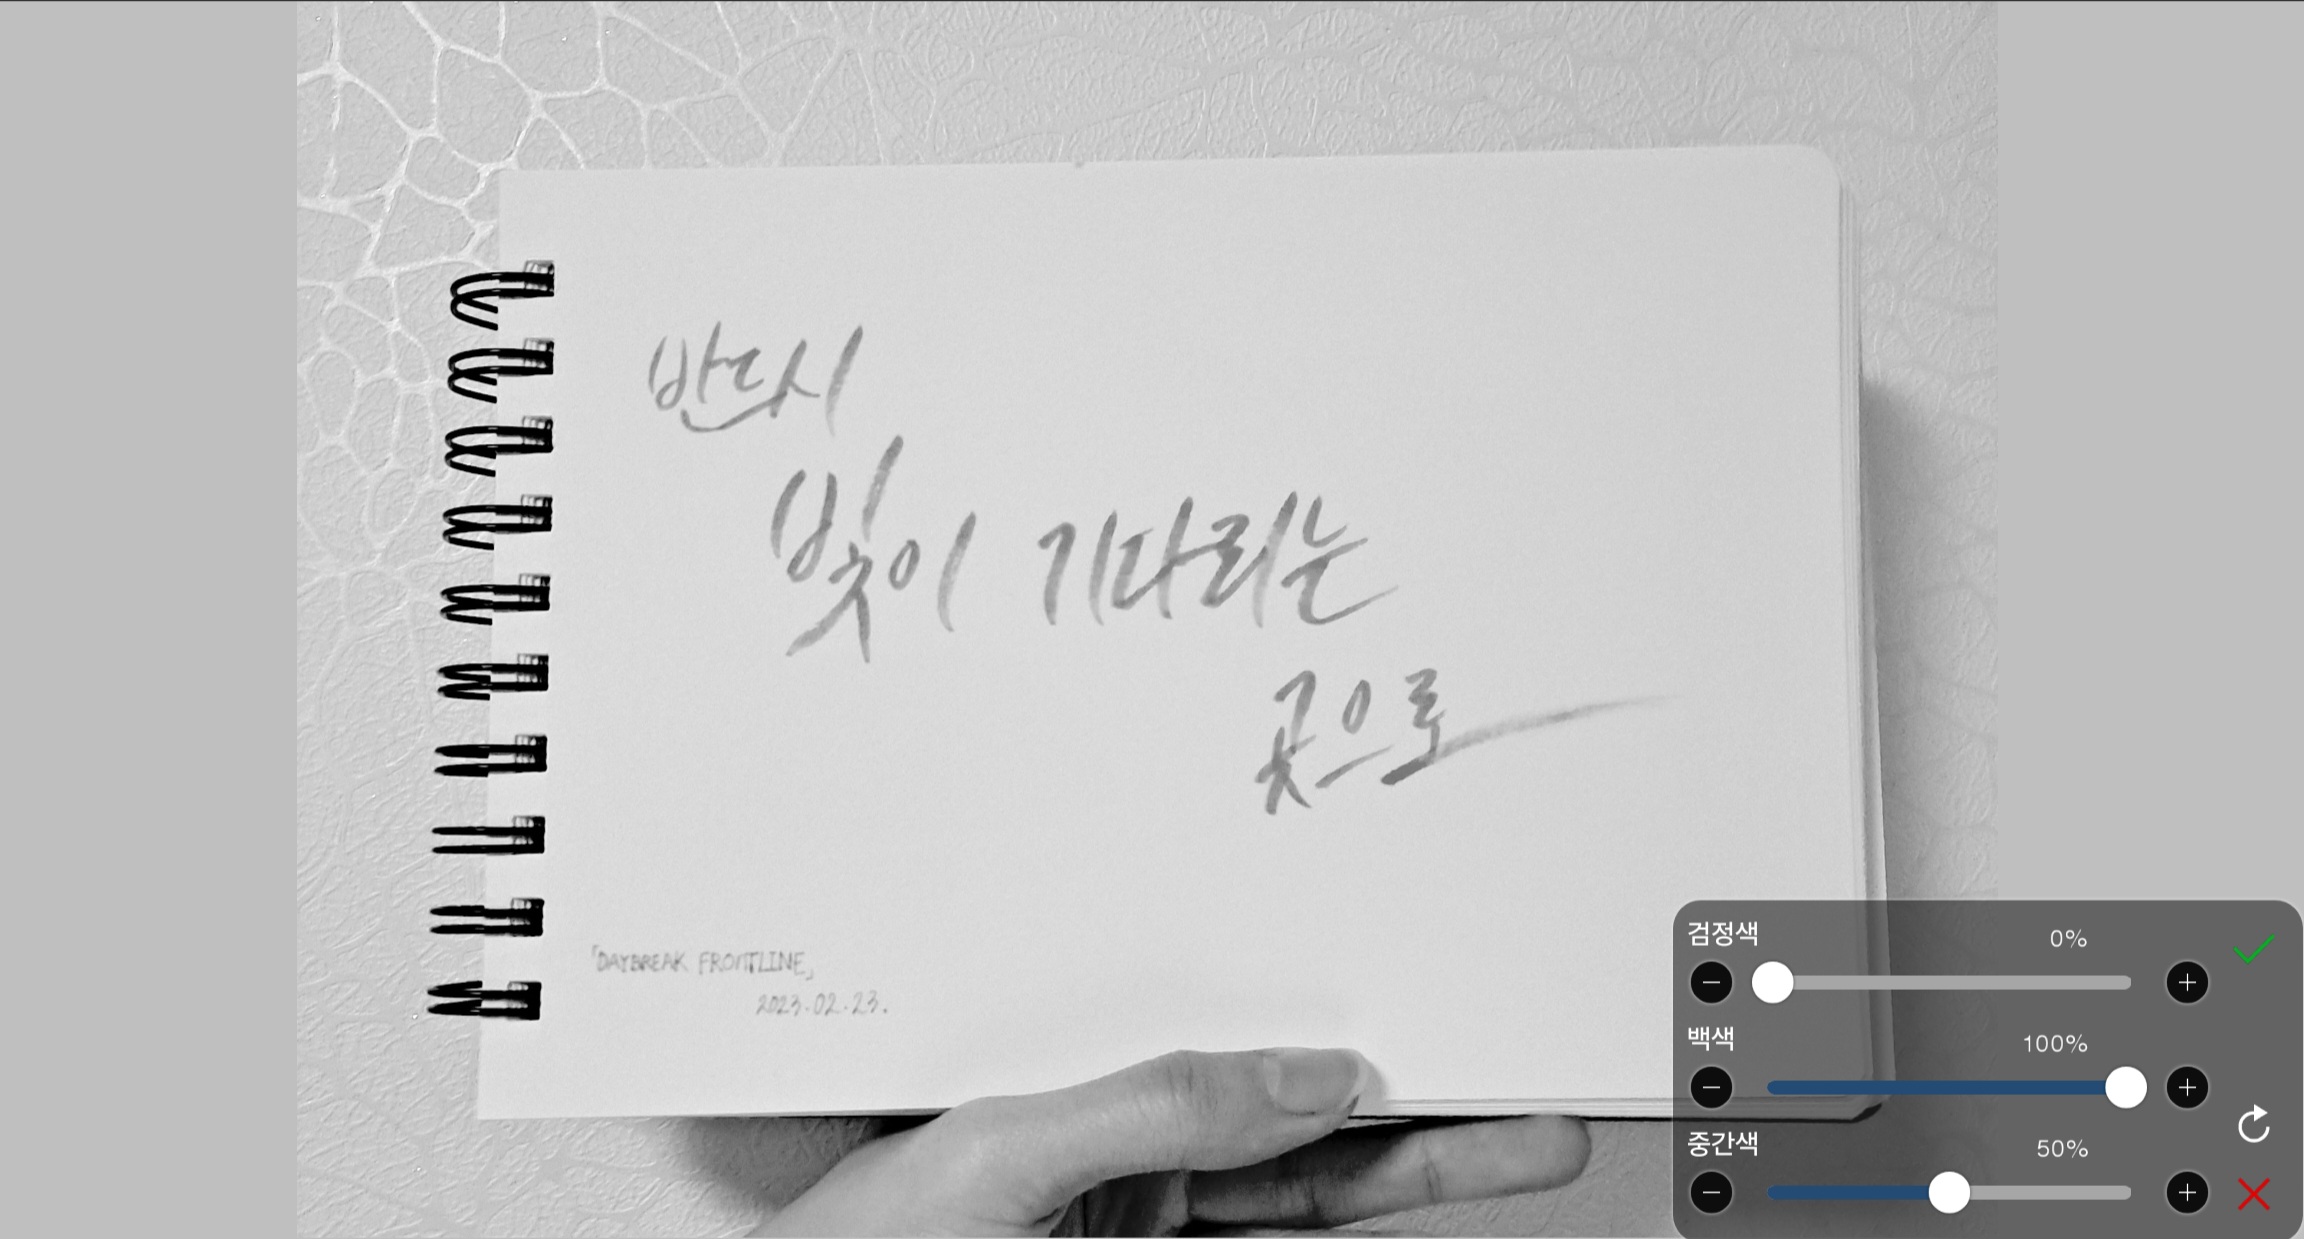 반드시
빛이 기다리는
곳으로
「DAYBREAK FRONTLINE」
2023.02.23.
검정색 0%
백색 100%
중간색 50%